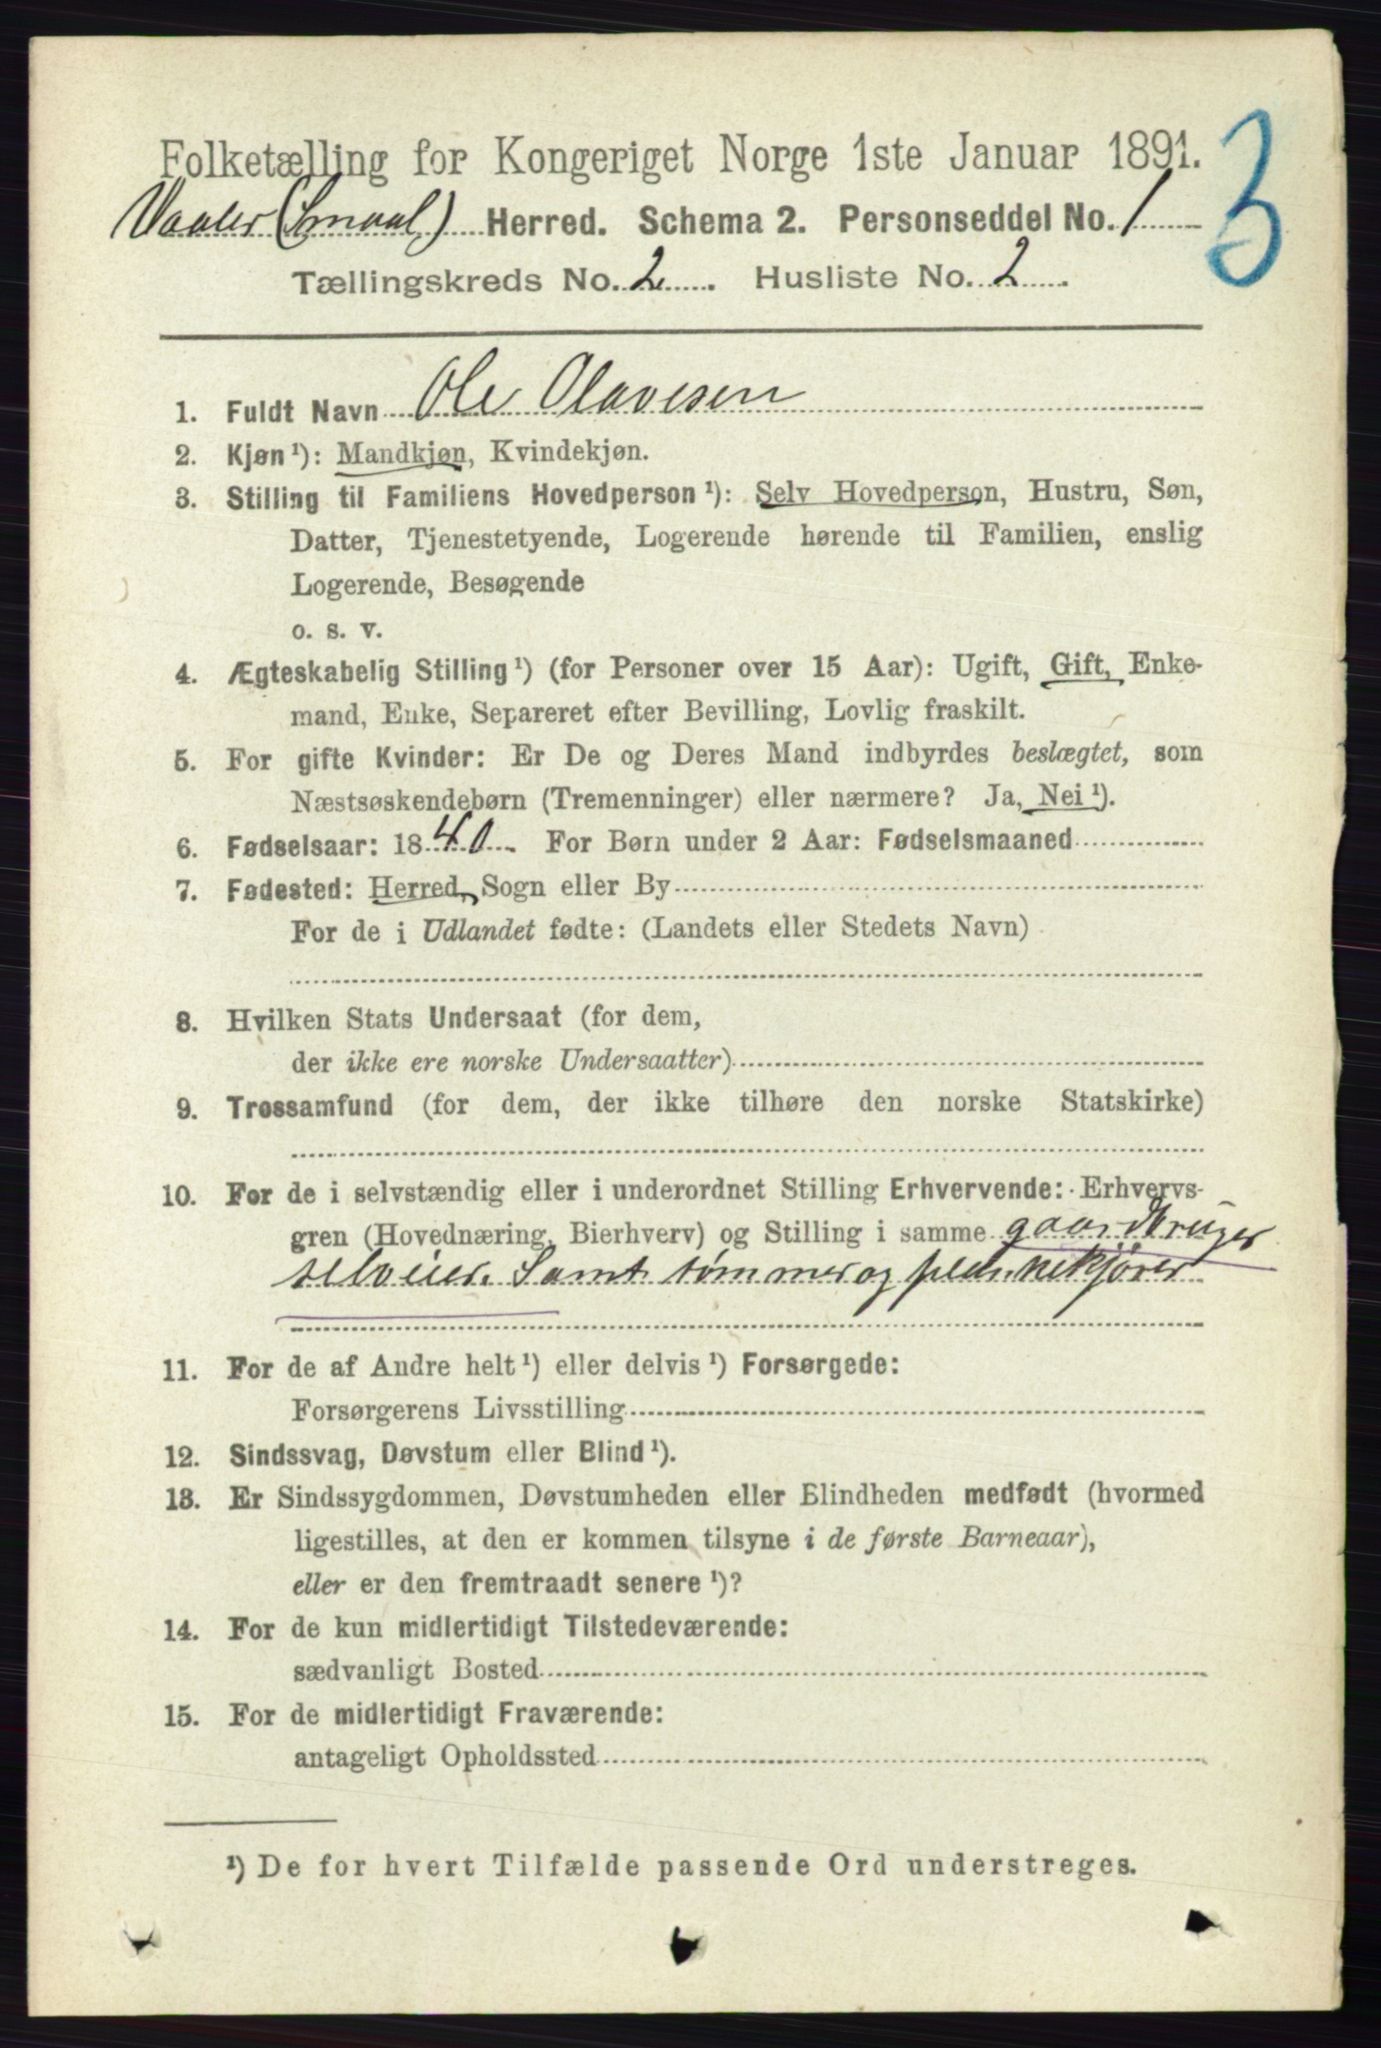 Folketælling for Kongeriget Norge 1ste Januar 1891.
3
Vaaler (Smaal.) Herred. Schema 2. Personseddel No. 1
Tællingskreds No. 2. Husliste No. 2.
1. Fuldt Navn Ole Olavesen
2. Kjøn ¹): Mandkjøn, Kvindekjøn.
3. Stilling til Familiens Hovedperson ¹): Selv Hovedperson, Hustru, Søn,
Datter, Tjenestetyende, Logerende hørende til Familien, enslig
Logerende, Besøgende
o. s. v.
4. Ægteskabelig Stilling ¹) (for Personer over 15 Aar): Ugift, Gift, Enke-
mand, Enke, Separeret efter Bevilling, Lovlig fraskilt.
5. For gifte Kvinder: Er De og Deres Mand indbyrdes beslægtet, som
Næstsøskendebørn (Tremenninger) eller nærmere? Ja, Nei ¹).
6. Fødselsaar: 1840. For Børn under 2 Aar: Fødselsmaaned
7. Fødested: Herred, Sogn eller By
For de i Udlandet fødte: (Landets eller Stedets Navn)
8. Hvilken Stats Undersaat (for dem,
der ikke ere norske Undersaatter)
9. Trossamfund (for dem, der ikke tilhøre den norske Statskirke)
10. For de i selvstændig eller i underordnet Stilling Erhvervende: Erhvervs-
gren (Hovednæring, Bierhverv) og Stilling i samme gaardbruger
selveier. Samt tømmer og plankekjører
11. For de af Andre helt ¹) eller delvis ¹) Forsørgede:
Forsørgerens Livsstilling
12. Sindssvag, Døvstum eller Blind ¹).
13. Er Sindssygdommen, Døvstumheden eller Blindheden medfødt (hvormed
ligestilles, at den er kommen tilsyne i de første Barneaar),
eller er den fremtraadt senere ¹)?
14. For de kun midlertidigt Tilstedeværende:
sædvanligt Bosted
15. For de midlertidigt Fraværende:
antageligt Opholdssted
¹) De for hvert Tilfælde passende Ord understreges.